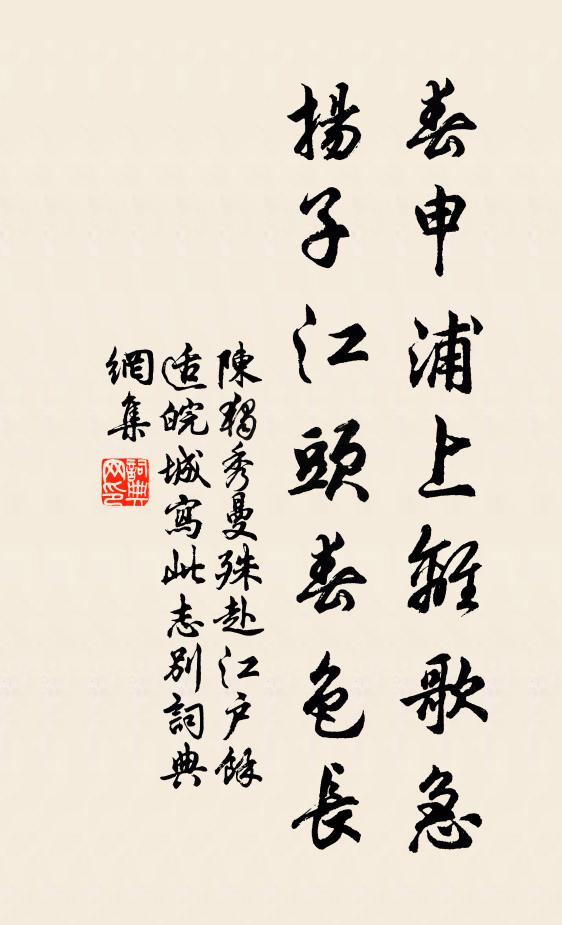 春申浦上離歌急
揚子江頭春色長
陳獨秀曼殊赴江戶餘
適皖城寫此志別詞典
網集
詞典網印